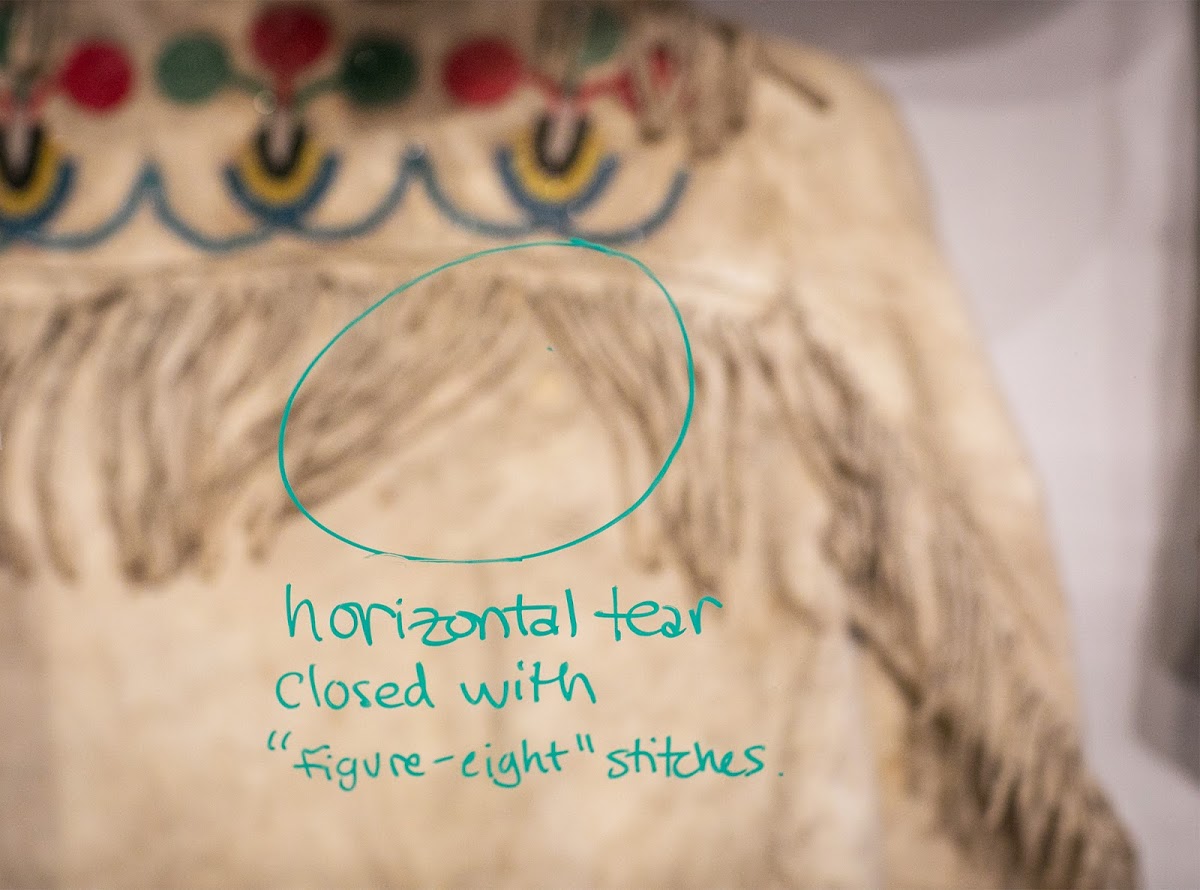 horizontal tear
closed with
"figure-eight" stitches.